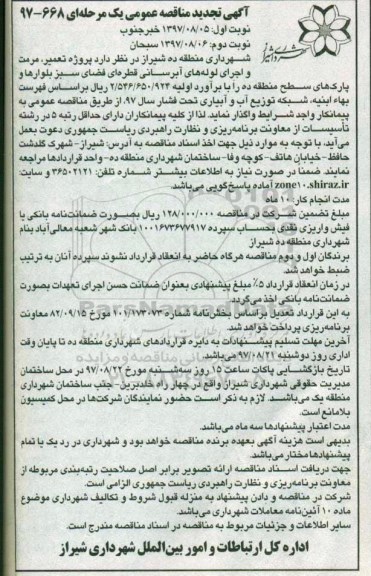 آگهی تجدید مناقصه عمومی یک مرحله‌ای ۶۶۸-۹۷
نوبت اول: ۱۳۹۷/۰۸/۰۵ خبرجنوب
نوبت دوم: ۱۳۹۷/۰۸/۰۶ سبحان
شهرداری منطقه ده شیراز در نظر دارد پروژه تعمیر، مرمت
و اجرای لوله‌های آبرسانی قطره‌ای فضای سبز بلوارها و
پارک‌های سطح منطقه ده را با برآورد اولیه ۲/۵۴۶/۶۵۰/۹۲۳ ریال براساس فهرست
بهاء ابنیه، شبکه توزیع آب و آبیاری تحت فشار سال ۹۷، از طریق مناقصه عمومی به
پیمانکار واجد شرایط واگذار نماید. لذا از کلیه پیمانکاران دارای حداقل رتبه ۵ در رشته
تأسیسات از معاونت برنامه‌ریزی و نظارت راهبردی ریاست جمهوری دعوت بعمل
می‌آید، با توجه به موارد ذیل جهت اخذ اسناد مناقصه به آدرس: شیراز- شهرک گلدشت
حافظ- خیابان هاتف- کوچه وفا- ساختمان شهرداری منطقه ده- واحد قراردادها مراجعه
نمایند. ضمنا در صورت نیاز به اطلاعات بیشتر شماره تلفن: ۳۶۵۰۲۱۲۱ و سایت:
zone10.shiraz.ir آماده پاسخ‌گویی می‌باشد.
مدت انجام کار: ۱۰ ماه
مبلغ تضمین شرکت در مناقصه ۱۲۸/۰۰۰/۰۰۰ ریال بصورت ضمانت‌نامه بانکی یا
فیش واریزی نقدی بحساب سپرده ۱۰۰۱۶۷۳۶۷۷۹۱۷ بانک شهر شعبه معالی‌آباد بنام
شهرداری منطقه ده شیراز
برندگان اول و دوم مناقصه هرگاه حاضر به انعقاد قرارداد نشوند سپرده آنان به ترتیب
ضبط خواهد شد.
در زمان انعقاد قرارداد ۵٪ مبلغ پیشنهادی بعنوان ضمانت حسن اجرای تعهدات بصورت
ضمانت‌نامه بانکی اخذ می‌گردد.
به این قرارداد تعدیل براساس بخش‌نامه شماره ۱۰۱/۱۷۳۰۷۳ مورخ ۸۲/۰۹/۱۵ معاونت
برنامه‌ریزی پرداخت خواهد شد.
آخرین مهلت تسلیم پیشنهادات به دایره قراردادهای شهرداری منطقه ده تا پایان وقت
اداری روز دوشنبه ۹۷/۰۸/۲۱ می‌باشد.
تاریخ بازگشایی پاکات ساعت ۱۵ روز سه‌شنبه مورخ ۹۷/۰۸/۲۲ در محل ساختمان
مدیریت حقوقی شهرداری شیراز واقع در چهار راه خلدبرین- جنب ساختمان شهرداری
منطقه یک می‌باشد. لازم به ذکر است حضور نمایندگان شرکت‌ها در محل کمیسیون
بلامانع است.
مدت اعتبار پیشنهادها سه ماه می‌باشد.
بدیهی است هزینه آگهی بعهده برنده مناقصه خواهد بود و شهرداری در رد یک یا تمام
پیشنهادها مختار می‌باشد.
جهت دریافت اسناد مناقصه ارائه تصویر برابر اصل صلاحیت رتبه‌بندی مربوطه از
معاونت برنامه‌ریزی و نظارت راهبردی ریاست جمهوری الزامی است.
شرکت در مناقصه و دادن پیشنهاد به منزله قبول شروط و تکالیف شهرداری موضوع
ماده ۱۰ آئین‌نامه معاملات شهرداری می‌باشد.
سایر اطلاعات و جزئیات مربوط به مناقصه در اسناد مناقصه مندرج است.
اداره کل ارتباطات و امور بین‌الملل شهرداری شیراز